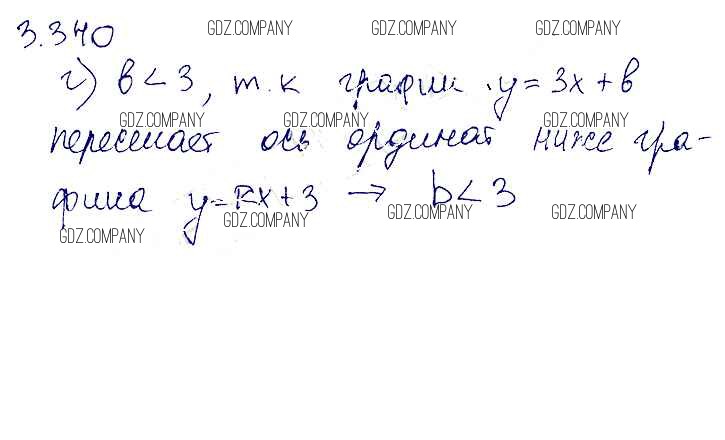 3.340 GDZ.COMPANY GDZ.COMPANY GDZ.COMPANY
г) b < 3, т.к график y = 3x + b
GDZ.COMPANY GDZ.COMPANY GDZ.COMPANY
пересекает ось ординат ниже гра-
фика y = kx + 3 → b < 3
GDZ.COMPANY GDZ.COMPANY GDZ.COMPANY GDZ.COMPANY